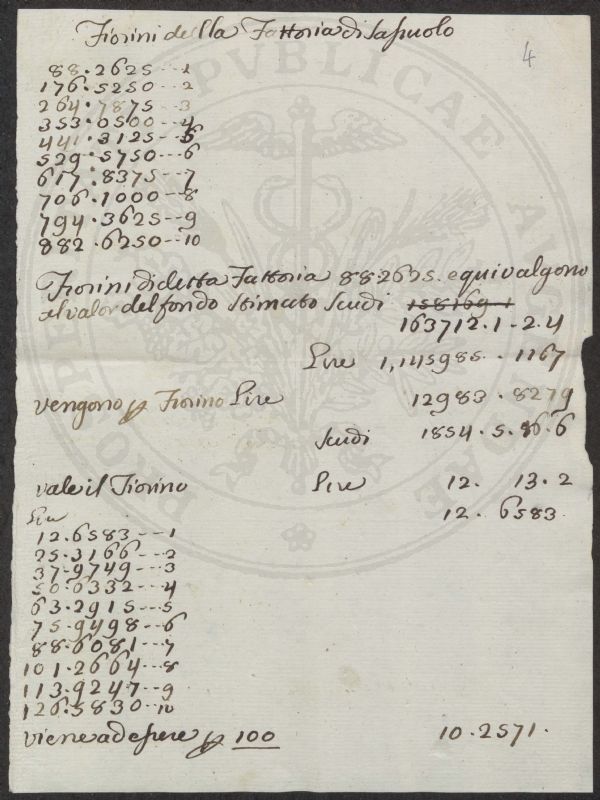 Fiorini della Fattoria di Sassuolo
4
88.2625 -- 1
176.5250 -- 2
264.7875 -- 3
353.0500 -- 4
441.3125 -- 5
529.5750 -- 6
617.8375 -- 7
706.1000 -- 8
794.3625 -- 9
882.6250 -- 10
Fiorini di detta Fattoria 882625. equivalgono
al valor del fondo stimato Scudi 158169-1
163712.1-2.4
Lire 1,145985.. 1167
vengono p Fiorino Lire 12983.8279
Scudi 1854.5.16.6
vale il Fiorino Lire 12. 13.2
Lire 12. 6583
12.6583 --- 1
25.3166 --- 2
37.9749 --- 3
50.6332 --- 4
63.2915 --- 5
75.9498 --- 6
88.6081 --- 7
101.2664 --- 8
113.9247 --- 9
126.5830 -- 10
viene ad essere p 100 10.2571.
PRO PUBLICAE